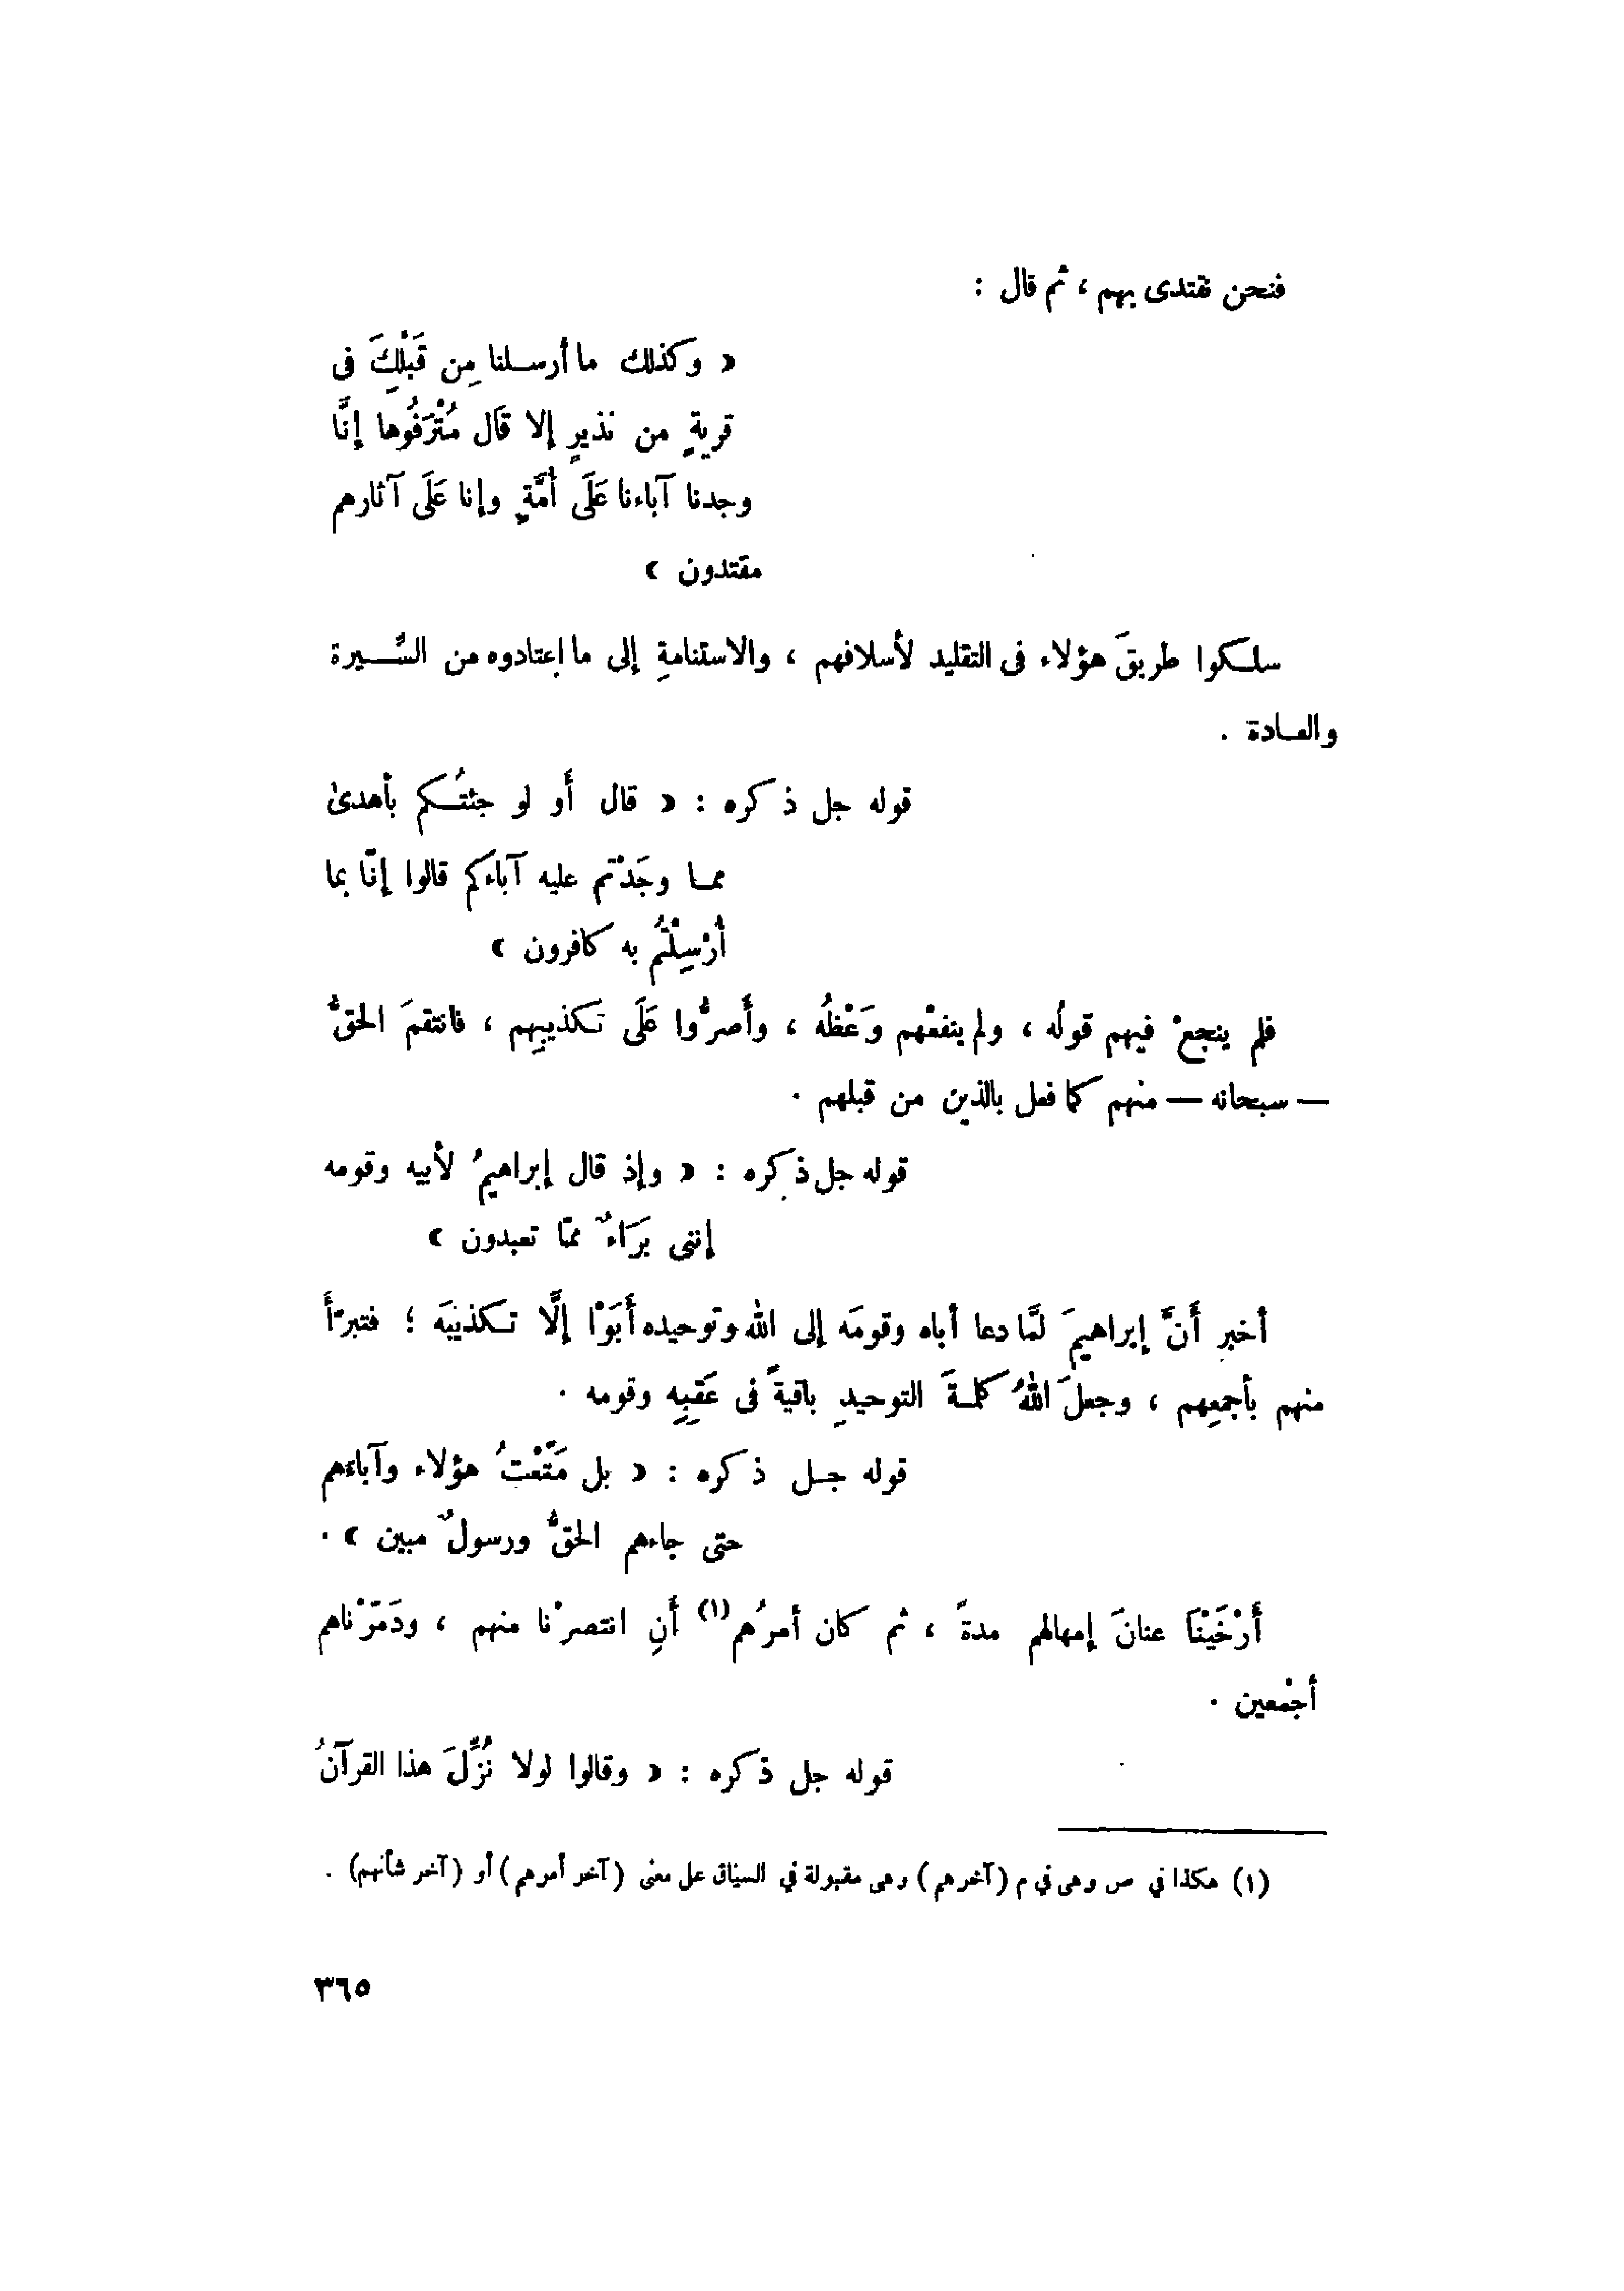 فنحن نقتدى بهم ، ثم قال :
« وكذلك ما أرسلنا مِن قَبْلِكَ فى
قريةٍ من نذيرٍ إلا قَال مُتْرَفُوها إنَّا
وجدنا آباءنا عَلَى أُمَّةٍ وإنا عَلَى آثارهم
مقتدون »
سلكوا طريقَ هؤلاء فى التقليد لأسلافهم ، والاستنامةِ إلى ما اعتادوه من السِّيرة
والعادة .
قوله جل ذكره : « قال أَو لو جئتُكم بأهدىٰ
مما وجَدْتم عليه آباءكم قالوا إنّا بما
أُرْسِلْتُم به كافرون »
فلم ينجعْ فيهم قولُه ، ولم ينفعْهم وَعْظُه ، وأَصرُّوا عَلَى تكذيبِهم ، فانتقمَ الحقُّ
— سبحانه — منهم كما فعل بالذين من قبلهم .
قوله جل ذكره : « وإذ قال إبراهيمُ لأبيه وقومه
إننى بَرَاءٌ ممّا تعبدون »
أخبر أَنَّ إبراهيمَ لمَّا دعا أباه وقومَه إلى الله وتوحيده أَبَوْا إلَّا تكذيبَه ؛ فتبرّأَ
منهم بأجمعِهم ، وجعلَ اللهُ كلمةَ التوحيدِ باقيةً فى عَقِبِه وقومه .
قوله جل ذكره : « بل مَتَّعْتُ هؤلاء وآباءهم
حتى جاءهم الحقُّ ورسولٌ مبين » .
أَرْخَيْنَا عنانَ إمهالهم مدةً ، ثم كان أمرُهم (١) أَنِ انتصرْنا منهم ، ودَمّرْناهم
أجْمعين .
قوله جل ذكره : « وقالوا لولا نُزِّلَ هذا القرآنُ
(١) هكذا في ص وهى في م (آخرهم) وهى مقبولة في السياق على معنى (آخر أمرهم) أو (آخر شأنهم) .
٣٦٥